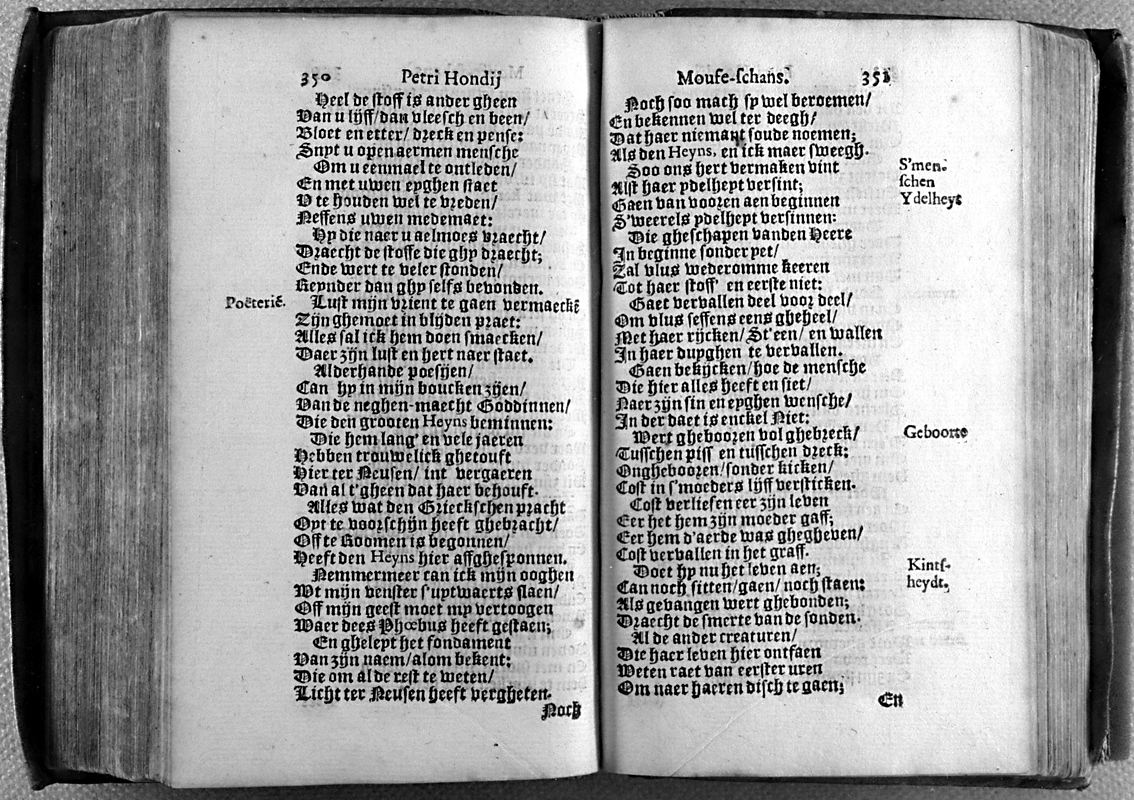 350 Petri Hondij
Heel de stoff is ander gheen
Van u lijff/ dan vleesch en been/
Bloet en etter/ dreck en pense:
Snyt u open aermen mensche
Om u eenmael te ontleden/
En met uwen eyghen staet
U te houden wel te vreden/
Neffens uwen medemaet:
Hy die naer u aelmoes vraecht/
Draecht de stoffe die ghy draecht;
Ende wert te veler stonden/
Reynder dan ghy selfs bevonden.
Poëteriē.
Lust mijn vrient te gaen vermaeckē
Zijn ghemoet in blijden praet:
Alles sal ick hem doen smaecken/
Daer zijn lust en hert naer staet.
Alderhande poesijen/
Can hy in mijn boucken zijen/
Van de neghen-maecht Goddinnen/
Die den grooten Heyns beminnen:
Die hem lang' en vele jaeren
Hebben trouwelick ghetouft
Hier ter Neusen/ int vergaeren
Van al t'gheen dat haer behouft.
Alles wat den Grieckschen pracht
Oyt te voorschijn heeft ghebracht/
Off te Roomen is begonnen/
Heeft den Heyns hier affghesponnen.
Nemmermeer can ick mijn ooghen
Wt mijn venster s'uptwaerts slaen/
Off mijn geest moet my vertoogen
Waer dees Phœbus heeft gestaen;
En ghelept het fondament
Van zijn naem/ alom bekent:
Die om al de rest te weten/
Licht ter Neusen heeft vergheten.
Noch
Mouse-schans. 351
Noch soo mach sy wel beroemen/
En bekennen wel ter deegh/
Dat haer niemant soude noemen;
Als den Heyns, en ick maer sweegh.
Soo ons hert vermaken vint
S'men-
schen
Ydelheyt
Alst haer ydelheyt versint;
Gaen van vooren aen beginnen
S'weerels ydelheyt versinnen:
Die gheschapen vanden Heere
In beginne sonder yet/
Zal vlus wederomme keeren
Tot haer stoff' en eerste niet:
Gaet vervallen deel voor deel/
Om vlus seffens eens gheheel/
Met haer rijcken/ St'een/ en wallen
In haer duyghen te vervallen.
Gaen bekijcken/ hoe de mensche
Die hier alles heeft en siet/
Naer zijn sin en eyghen wensche/
In der daet is enckel Niet:
Wert ghebooren vol ghebreck/
Geboorte
Tusschen piss' en tusschen dreck:
Onghebooren/ sonder kicken/
Cost in s'moeders lijff versticken.
Cost verliesen eer zijn leven
Eer het hem zijn moeder gaff;
Eer hem d'aerde was ghegheven/
Cost vervallen in het graff.
Doet hy nu het leven aen;
Kints-
heydt.
Can noch sitten/ gaen/ noch staen:
Als gevangen wert ghebonden;
Draecht de smerte van de sonden.
Al de ander creaturen/
Die haer leven hier ontfaen
Weten raet van eerster uren
Om naer haeren disch te gaen;
En